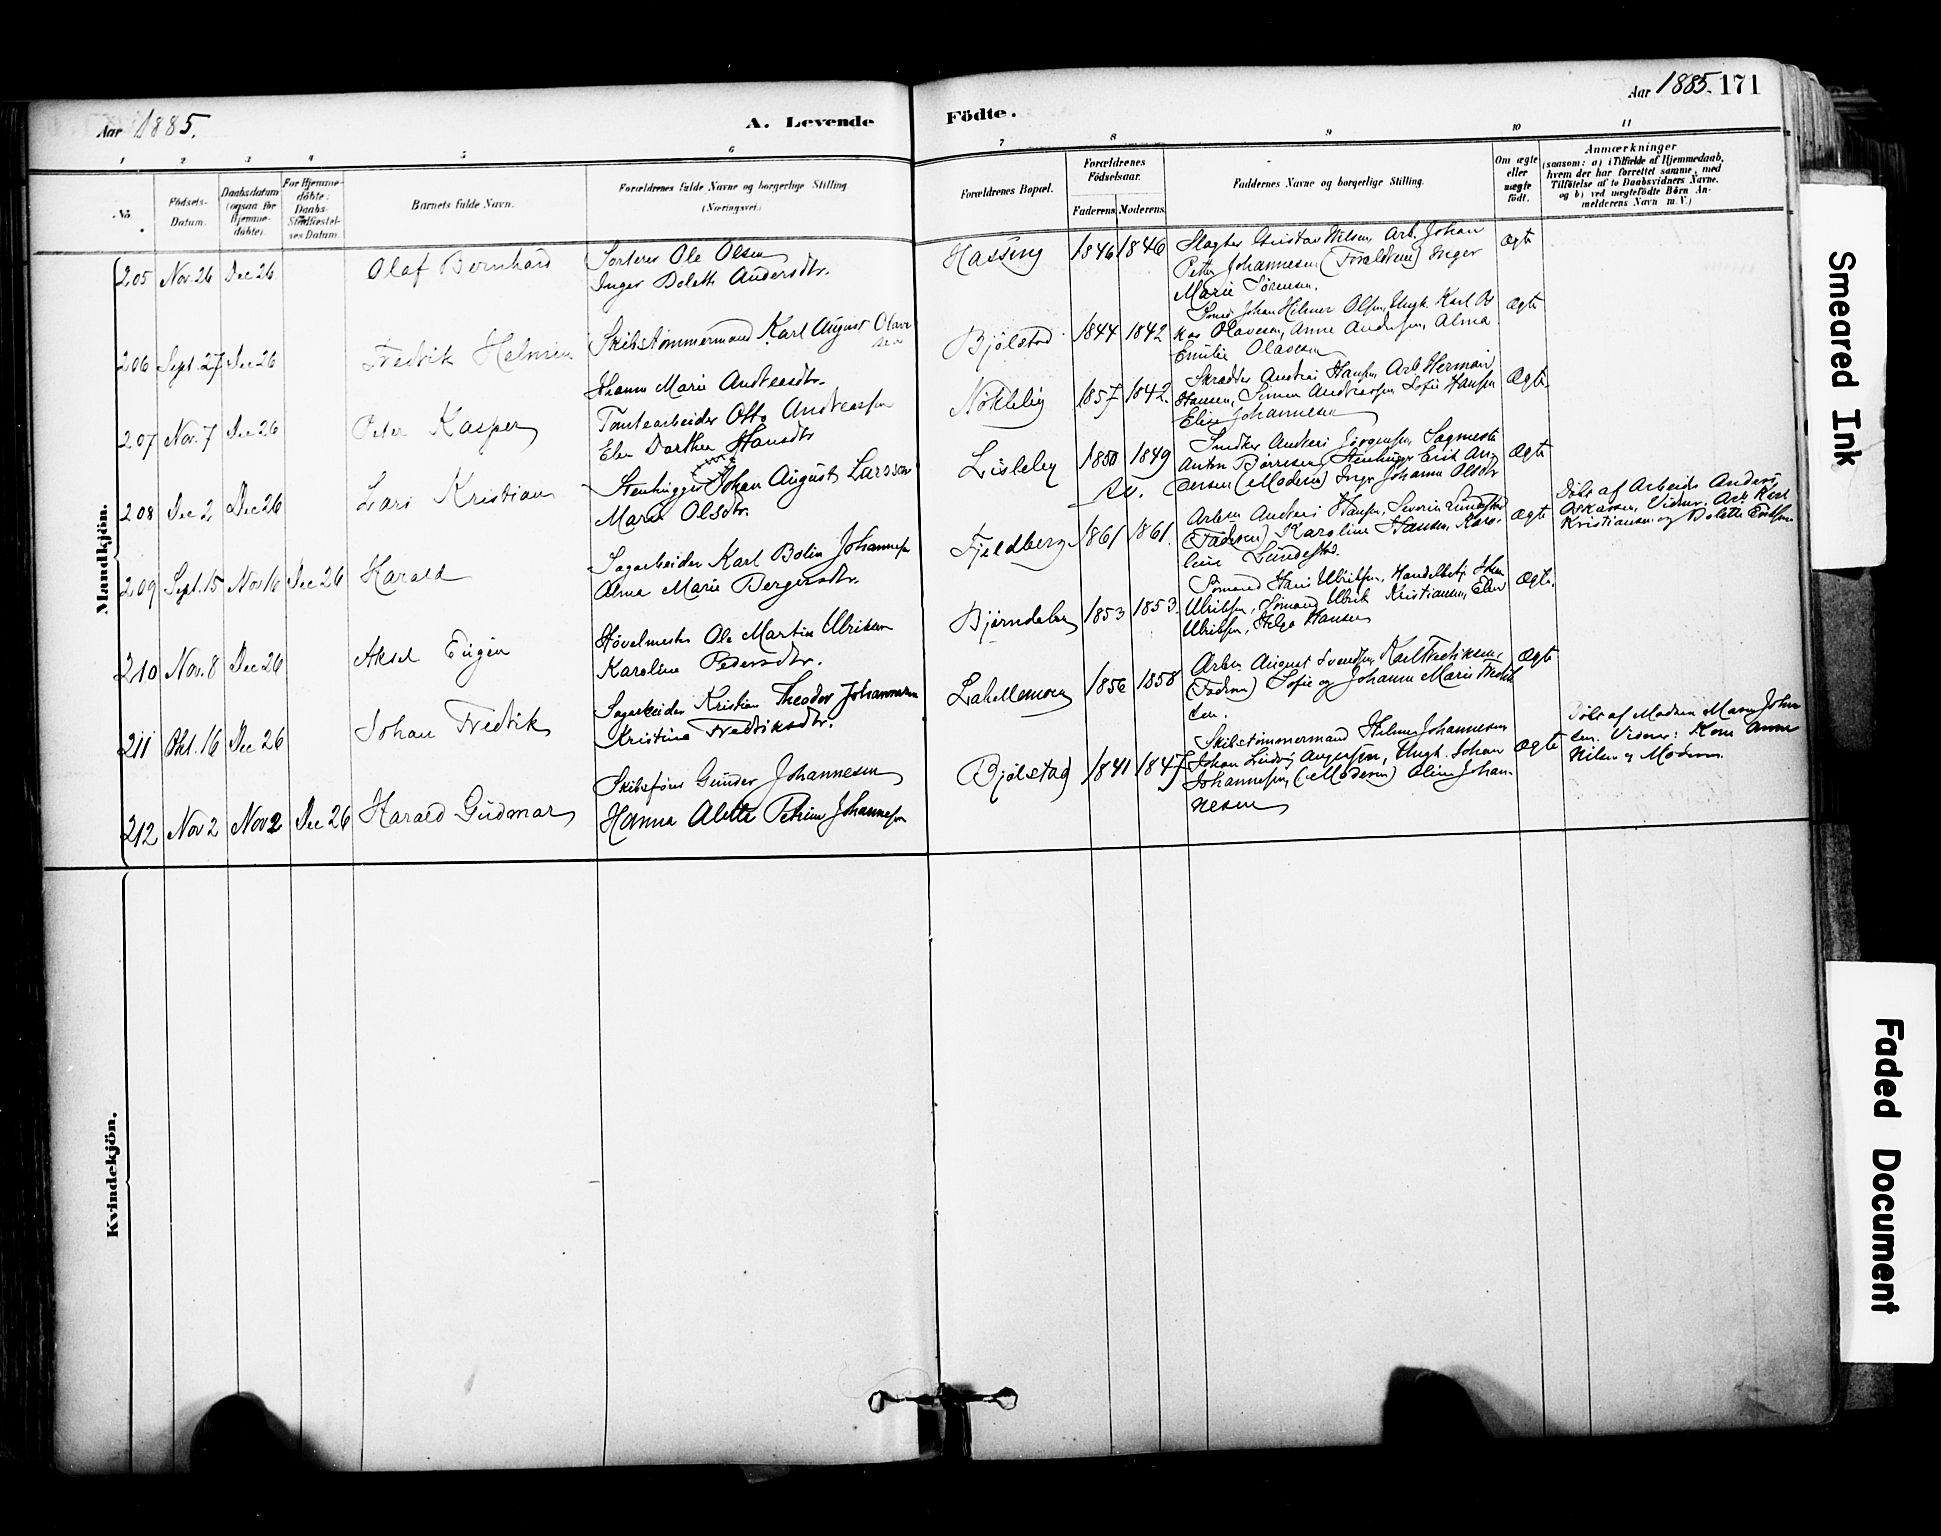 Aar 1885.
A. Levende
Födte.
Aar 1885. 171
1 2 3 4 5 6 7 8 9 10 11
No.
Födsels-
Datum.
Daabsdatum
(ogsaa for
Hjemme-
döbte).
For Hjemme-
döbte:
Daabs-
Stadfæstel-
ses Datum
Barnets fulde Navn.
Forældrenes fulde Navne og borgerlige Stilling
(Næringsvei.)
Forældrenes Bopæl.
Forældrenes
Födselsaar.
Faderens. Moderens.
Faddernes Navne og borgerlige Stilling.
Om ægte
eller
uægte
födt.
Anmærkninger
(saasom: a) i Tilfælde af Hjemmedaab,
hvem der har forrettet samme, med
Tilföielse af to Daabsvidners Navne.
og b) ved uægtefödte Börn An-
melderens Navn m. V.)
Mandkjön.
205 Nov. 26 Dec 26. Olaf Bernhard
Sorterer Ole Olsen
Inger Doleth Andersdtr.
Hassing 1846 1846
Slagter Gustav Nilsen, Arb. Johan
Petter Johannesen (Forældrene) Inger
Marie Sørensen.
Ægte
206 Sept. 27 Dec 26 Fredrik Helmin
Skibstømmermand Karl August Olave
sen
Johanne Marie Andreasdtr.
Bjølstad 1844 1842
Johan Hilmer Olsen, Ungk. Karl Os
kar Olavesen, Anne Andersen, Alma
Emilie Olavesen
Ægte
207 Nov. 7 Dec 26 Peter Kasper
Tomtearbeider Otto Andreassen
Elen Dorthea Hansdtr
Nøkleby 1857 1842.
Skrædder Andreas Hansen, Arb. Herman
Hansen, Simen Andreassen, Sofie Hansen
Elise Johannesen
Ægte
208 Dec 2 Dec 26 Lars Kristian
Stenhugger Johan August Larsson
Marie Olsdtr.
Lisleby 1850 1849
Sv.
Snedker Andreas Jørgensen, Sagmester
Anton Børresen, Stenhugger Erik An-
dersen (Moderen) Inger Johanne Olsdtr
Ægte
209 Sept. 15 Nov 16 Dec 26 Harald
Sagarbeider Karl Bolin Johannesen
Alma Marie Bergersdtr.
Fjeldberg 1861 1861.
Arbm Andreas Hansen, Severin Lundestad
(Faderen) Karoline Hansen, Karo-
line Lundestad.
Ægte
Døbt af Arbeider Anders
Oskarsen, Vidner, Arb. Karl
Kristiansen og Bolette Eriksen
210 Nov. 8 Dec 26 Aksel Eugen
Høvelmester Ole Martin Ulriksen
Karoline Pedersdtr.
Bjørndalen 1853 1853.
Sømand Hans Ulriksen, Handelsbetj. Johan
Ulriksen, Sømand Ulrik Kristiansen, Elen
Ulriksen, Helga Hansen
Ægte.
211 Okt. 16 Dec 26 Johan Fredrik
Sagarbeider Kristian Theodor Johannesen
Kristine Fredriksdtr.
Lahellemoen 1856 1858
Arbm August Svendsen, Karl Fredriksen,
(Faderen) Sofie og Johanne Marie Fredrik
sen.
Ægte
212 Nov 2 Nov 2 Dec 26 Harald Gudmar
Skibsfører Gunder Johannesen
Hanna Alette Petrine Johannesen
Bjølstad 1841 1847
Skibstømmermand Helmer Johannesen
Johan Ludvig Augensen, Ungk. Johan
Johannesen, (Moderen) Oline Johan-
nesen
Ægte
Døbt af Madam Maren Johan
sen. Vidner: Kone Anne
Nilsen og Moderen.
Kvindekjön.
Smeared Ink
Faded Document